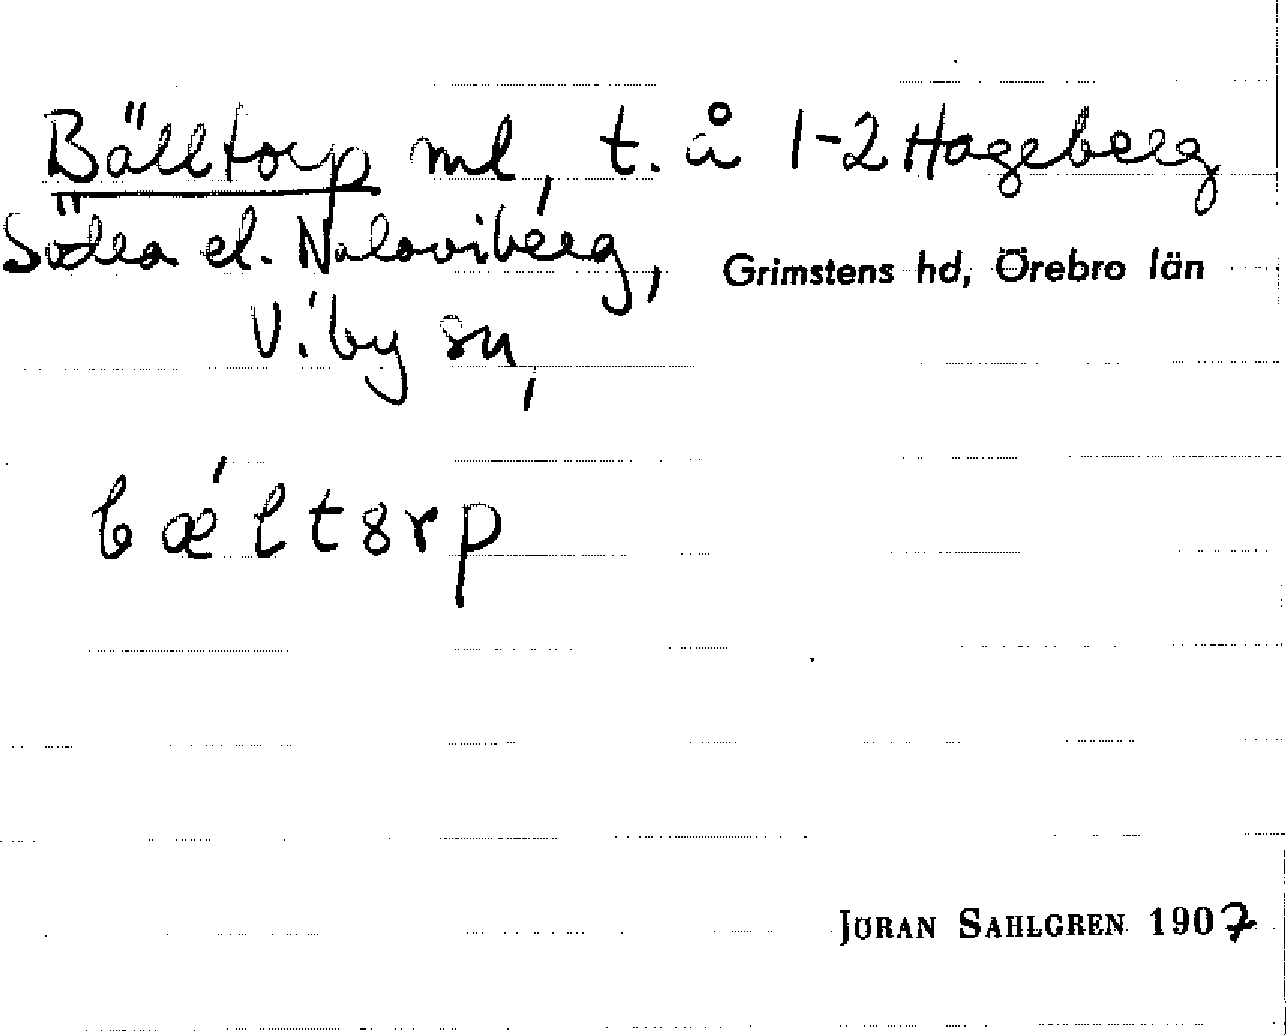 Bälltorp ml, t. å 1-2 Hageberg
Södra el. Nalavi berg, Grimstens hd, Örebro län
Viby sn,
bæ´ltsrp
JÖRAN SAHLGREN 1907